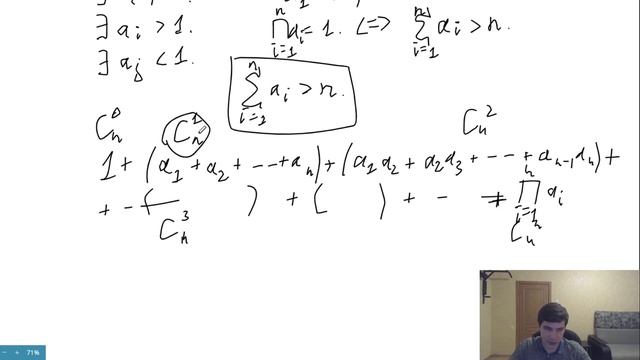 ∃ a_i > 1.
∏_{i=1}^{n} a_i = 1. <=> ∑_{i=1}^{n} a_i > n.
∃ a_j < 1.
∑_{i=1}^{n} a_i > n.
C_n^0 C_n^1 C_n^2
1 + (a_1 + a_2 + --- + a_n) + (a_1 a_2 + a_2 a_3 + --- + a_{n-1} a_n) +
+ - ( ) + ( ) + - + ∏_{i=1}^{n} a_i
C_n^3 C_n^n
- + 71%